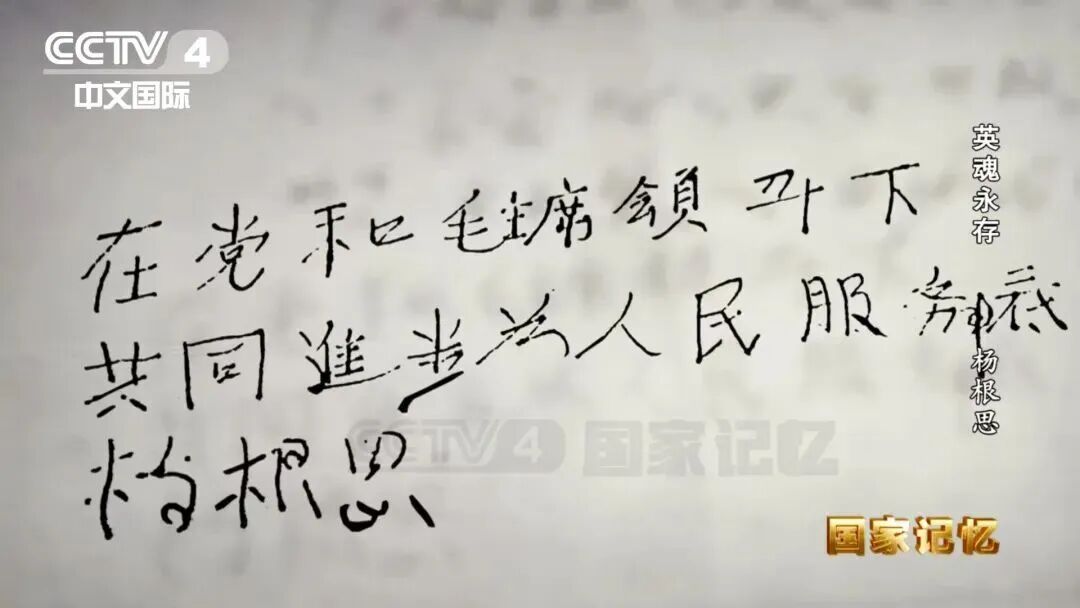 CCTV 4
中文国际
英魂永存 杨根思
在党和毛主席領导下
共同進步为人民服务到底
杨根思
CCTV 4 国家记忆
国家记忆